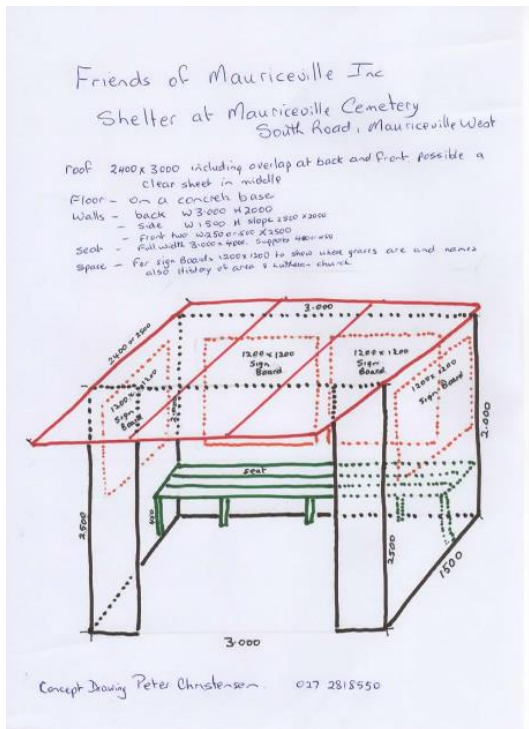 Friends of Mauriceville Inc
Shelter at Mauriceville Cemetery
South Road, Mauriceville West
roof 2400 x 3000 including overlap at back and front possible a
clear sheet in middle
Floor - On a concret base
Walls - back W 3.000 H 2000
- Side W 1.500 H slope 2500 x 2000
- Front two W 250 or 500 x 2500
Seat - Full width 3.000 x 400. Supports
Space - For sign Boards 1200 x 1200 to show where graves are and names
also History of area & Lutheran church
3.000
2400 or 2500
1200 x 1200
Sign
Board
1200 x 1200
Sign
Board
1200 x 1200
Sign
Board
1200 x 1200
Sign Board
2.000
Seat
2500
2500
1500
3.000
Concept Drawing Peter Christensen. 027 2818550